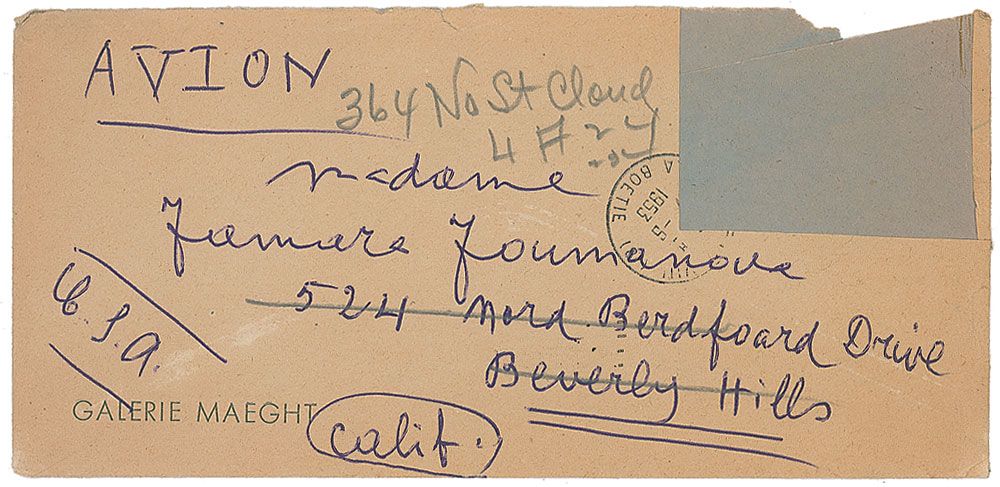 AVION
364 No St Cloud
madame
Tamara Toumanova
524 Nord. Berdfoard Drive
Beverly Hills
U.S.A.
GALERIE MAEGHT
Calif.
A BOETIE
1953